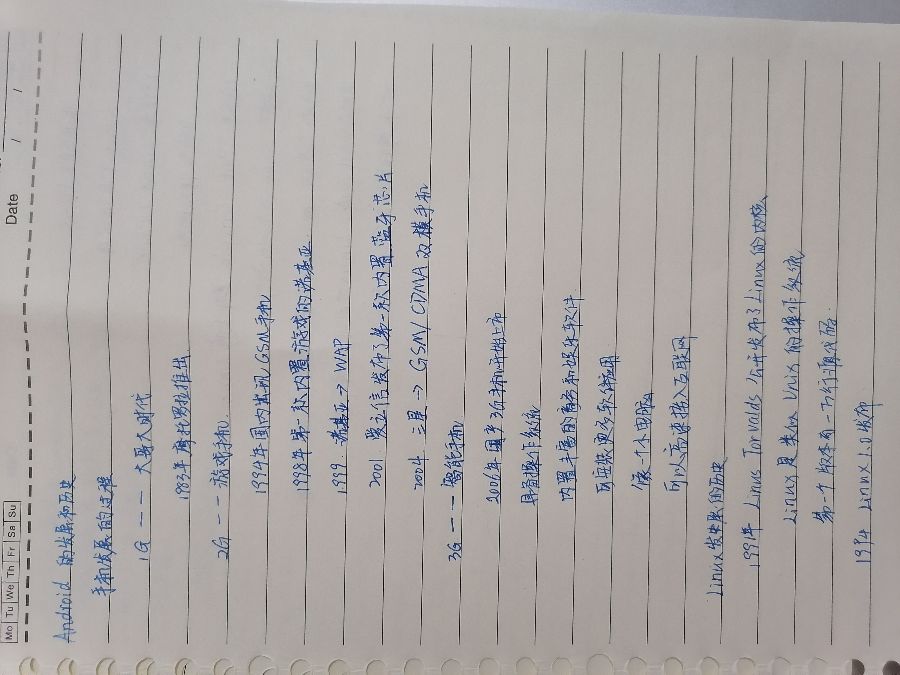 Mo Tu We Th Fr Sa Su
Date / /
Android 的发展和历史
手机发展的过程
1G --- 大哥大时代
1983年摩托罗拉推出
2G -- 游戏手机
1994年国内出现GSM手机
1998年第一款内置游戏的诺基亚
1999 诺基亚→WAP
2001 爱立信发布了第一款内置蓝牙芯片
2004 三星→GSM/CDMA双模手机
3G --- 智能手机
2006年国产3G手机开始上市
具备操作系统
内置丰富的商务和娱乐软件
可安装更多软件应用
像一个小电脑
可以高速接入互联网
Linux发展的历史
1991年 Linus Torvalds 公开发布了Linux的内核
Linux 是类似Unix的操作系统
第一个版本有一万行源代码
1994 Linux 1.0发布